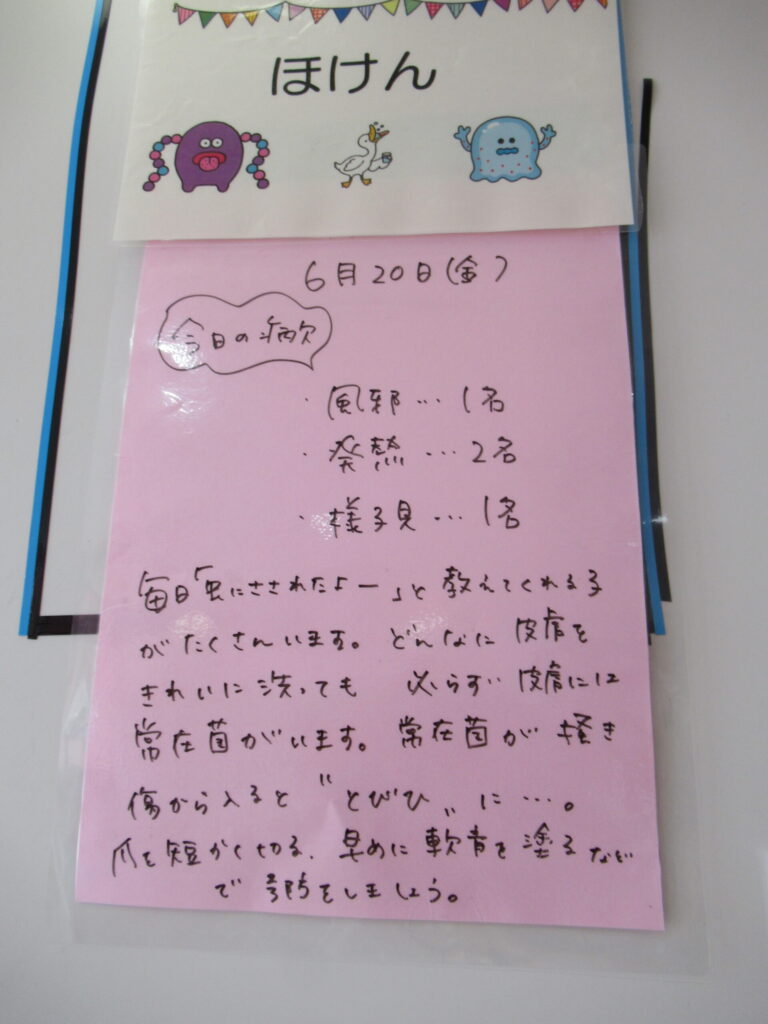 ほけん
6月20日(金)
今日の病欠
・風邪…1名
・発熱…2名
・様子見…1名
毎日「虫にさされたよー」と教えてくれる子
がたくさんいます。どんなに皮膚を
きれいに洗っても 必らず皮膚には
常在菌がいます。常在菌が掻き
傷から入ると〝とびひ〟に…。
爪を短かく切る、早めに軟膏を塗るなど
で予防をしましょう。